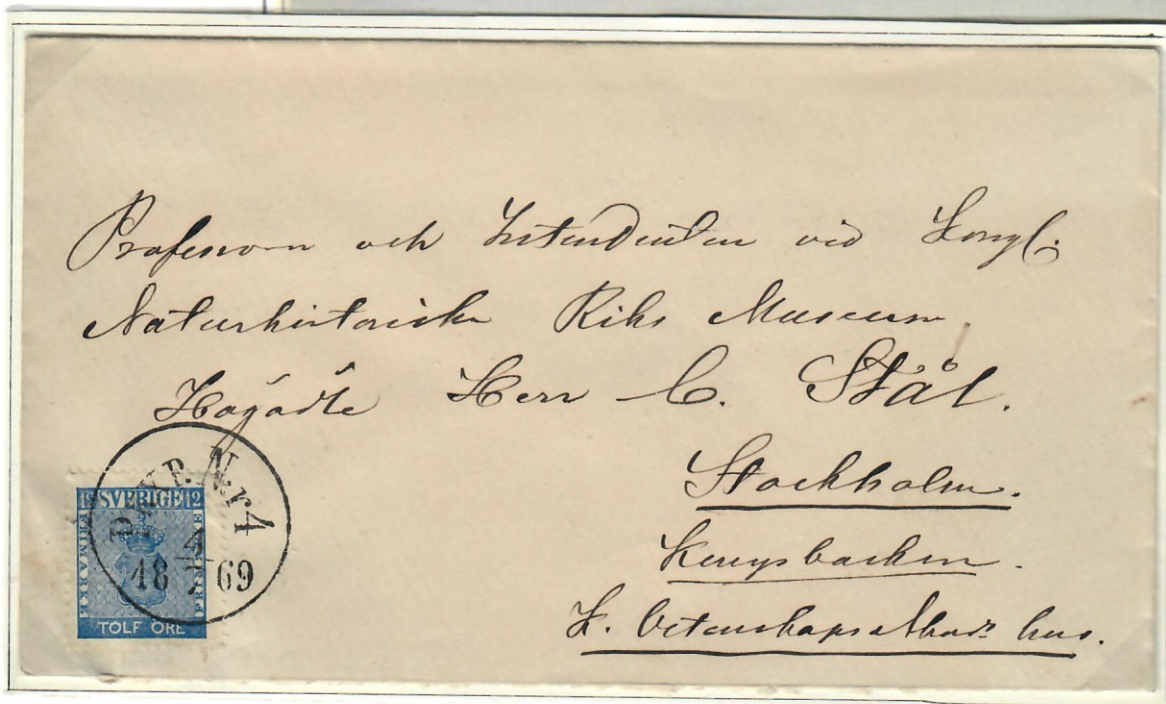 Professorn och Intendenten vid Kongl.
Naturhistoriska Riks Museum
Högädle Herr C. Stål.
Stockholm.
Kungsbacken.
K. Vetenskaps Akad:s hus.
PKXP. Nr 4
4
18 7 69
12 SVERIGE 12
FRIMÄRKE
FRIMÄRKE
TOLF ÖRE